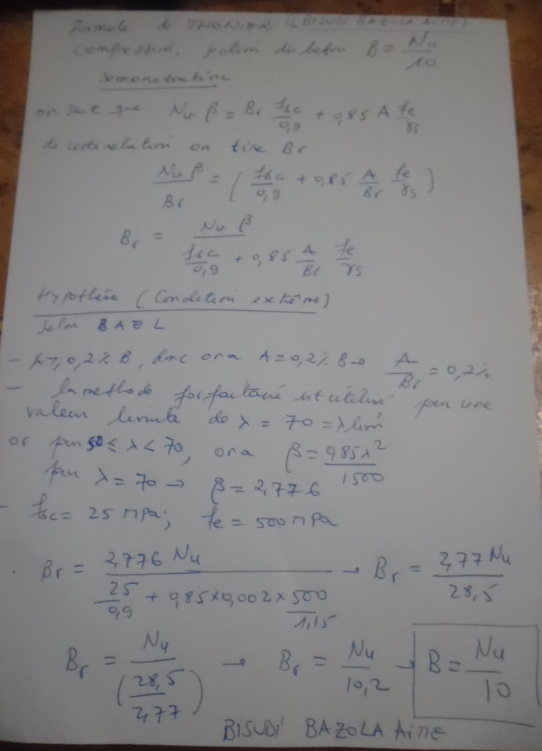 Formule de (BISUDI BAZOLA AIME)
Compression; poteau du beton B = Nu/10
Demonstration
on sait que Nu β = Br fbc/0,9 + 0,85 A fe/γs
de cette relation on tire Br
Nu β/Br = (fbc/0,9 + 0,85 A/Br fe/γs)
Br = Nu β/(fbc/0,9 + 0,85 A/Br fe/γs)
Hypothèse (Condition extrême)
selon BAEL
- A ≥ 0,2% B, donc on a A = 0,2% B → A/Br = 0,2%
- la methode forfaitaire est utilisé pour une
valeur limite de λ = 70 = λlim
or pour 50 ≤ λ < 70, on a β = 0,85λ²/1500
pour λ = 70 → β = 2,776
- fbc = 25 MPa; fe = 500 MPa
. Br = 2,776 Nu/(25/0,9 + 0,85×0,002×500/1,15) → Br = 2,77Nu/28,5
Br = Nu/(28,5/2,77) → Br = Nu/10,2 → B = Nu/10
BISUDI BAZOLA AIME